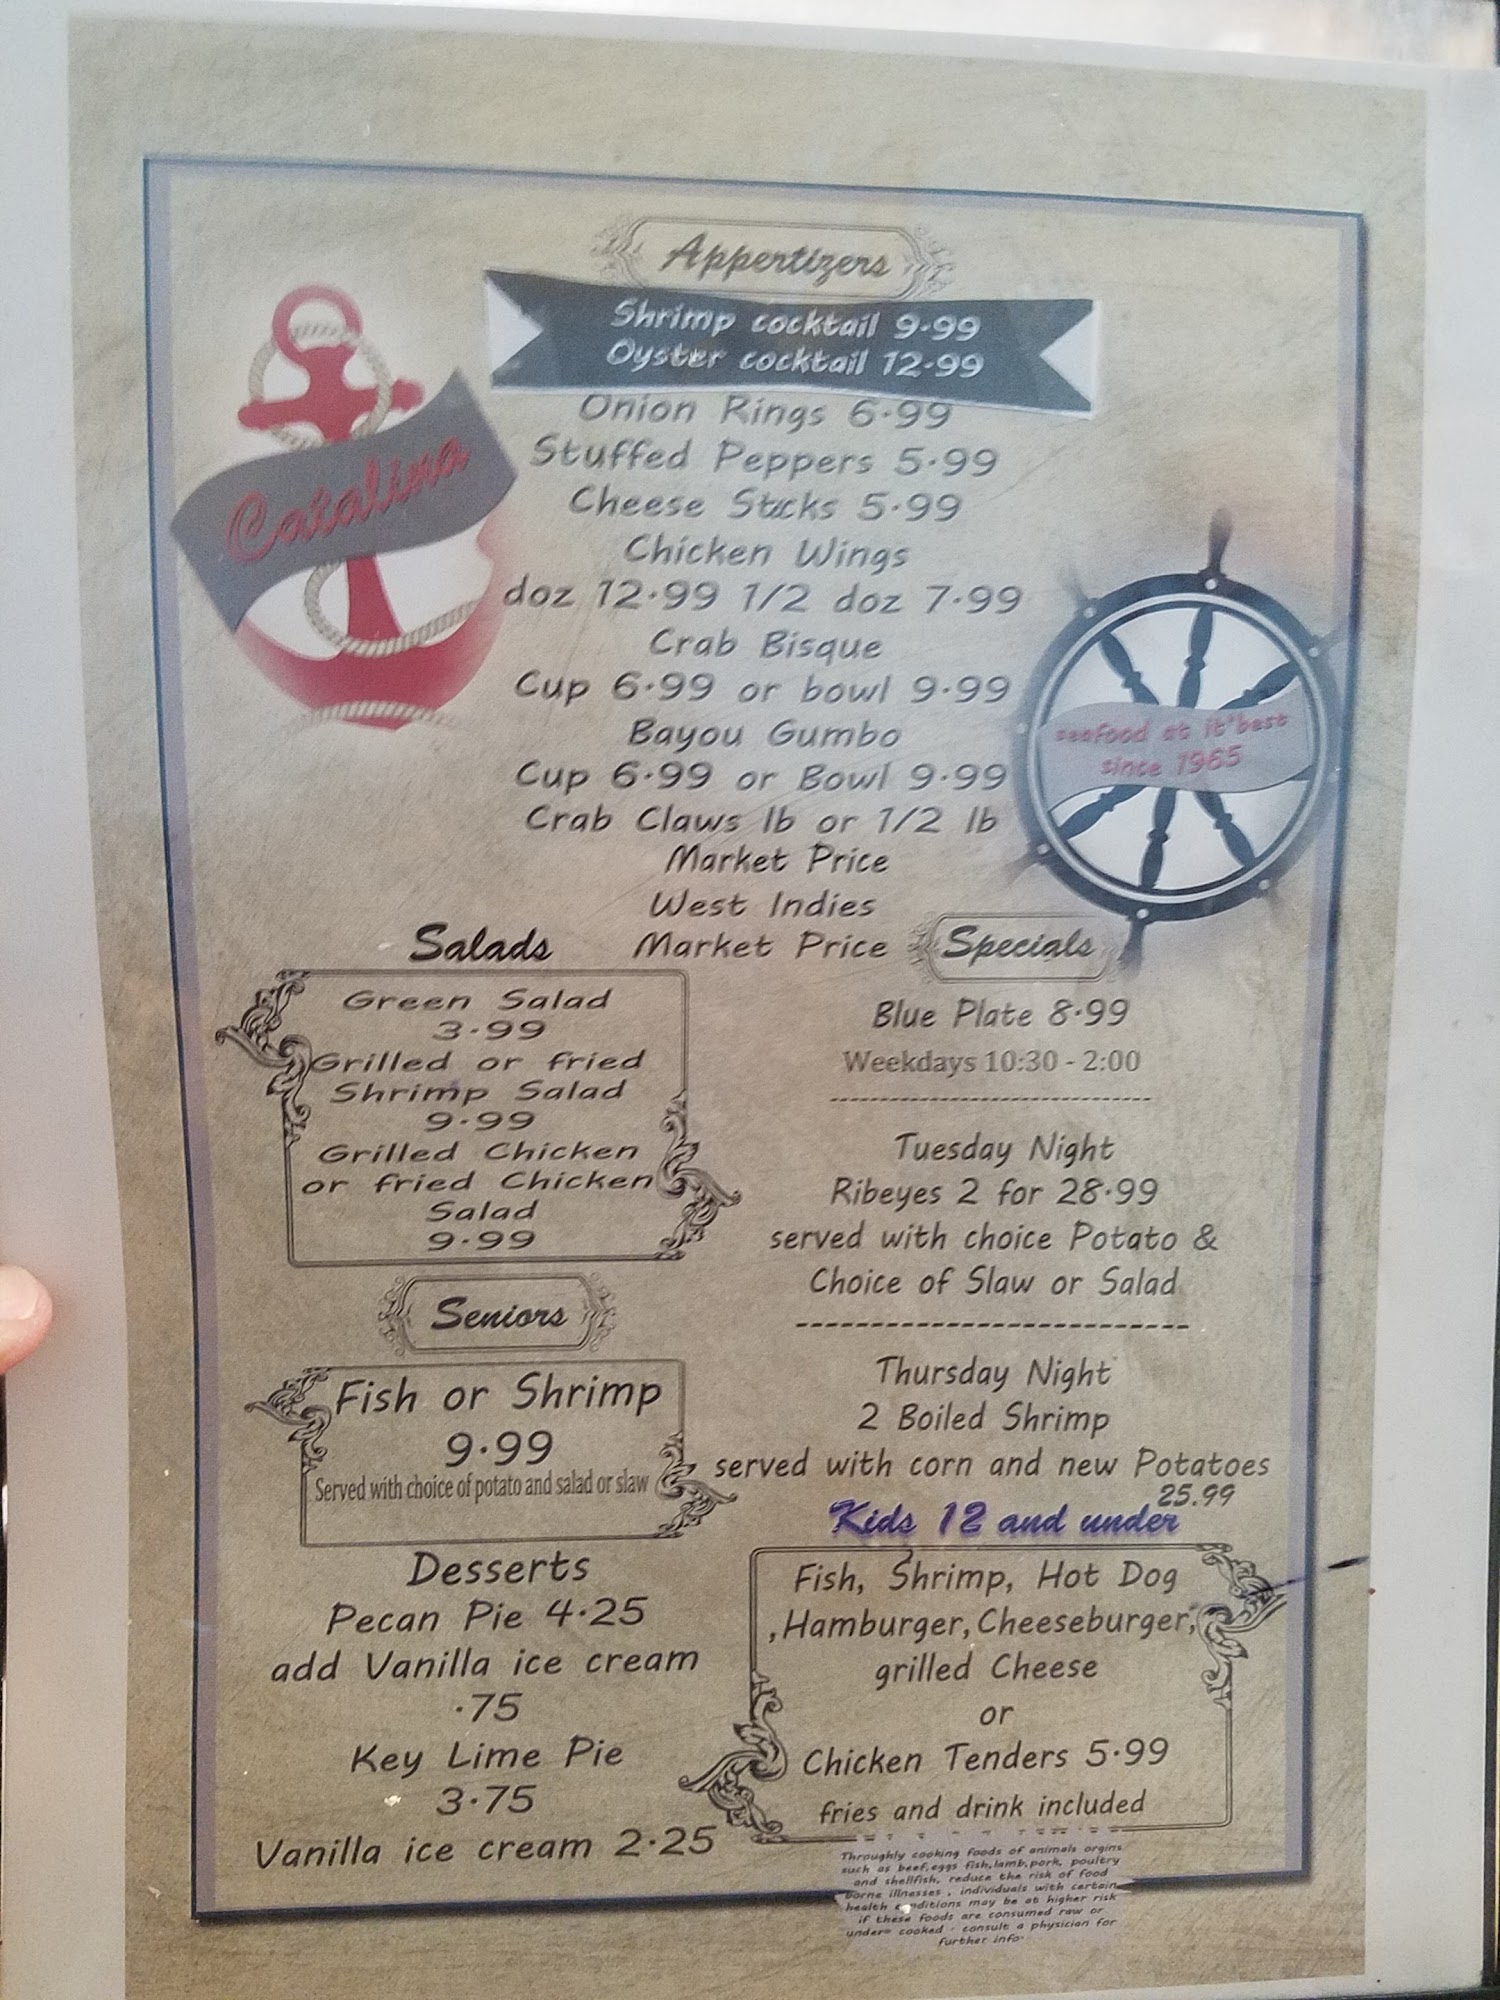 Appertizers
Shrimp cocktail 9.99
Oyster cocktail 12.99
Onion Rings 6.99
Stuffed Peppers 5.99
Cheese Sticks 5.99
Chicken Wings
doz 12.99 1/2 doz 7.99
Crab Bisque
Cup 6.99 or bowl 9.99
Bayou Gumbo
Cup 6.99 or Bowl 9.99
Crab Claws lb or 1/2 lb
Market Price
West Indies
Market Price
Catalina
seafood at it'best
since 1965
Salads
Green Salad
3.99
Grilled or fried
Shrimp Salad
9.99
Grilled Chicken
or fried Chicken
Salad
9.99
Seniors
Fish or Shrimp
9.99
Served with choice of potato and salad or slaw
Desserts
Pecan Pie 4.25
add Vanilla ice cream
.75
Key Lime Pie
3.75
Vanilla ice cream 2.25
Specials
Blue Plate 8.99
Weekdays 10:30 - 2:00
Tuesday Night
Ribeyes 2 for 28.99
served with choice Potato &
Choice of Slaw or Salad
Thursday Night
2 Boiled Shrimp
served with corn and new Potatoes
25.99
Kids 12 and under
Fish, Shrimp, Hot Dog
,Hamburger,Cheeseburger,
grilled Cheese
or
Chicken Tenders 5.99
fries and drink included
Throughly cooking foods of animals orgins
such as beef,eggs fish,lamb,pork, poultry
and shellfish, reduce the risk of food
borne illnesses , individuals with certain
health conditions may be at higher risk
if these foods are consumed raw or
under= cooked . consult a physician for
further info.